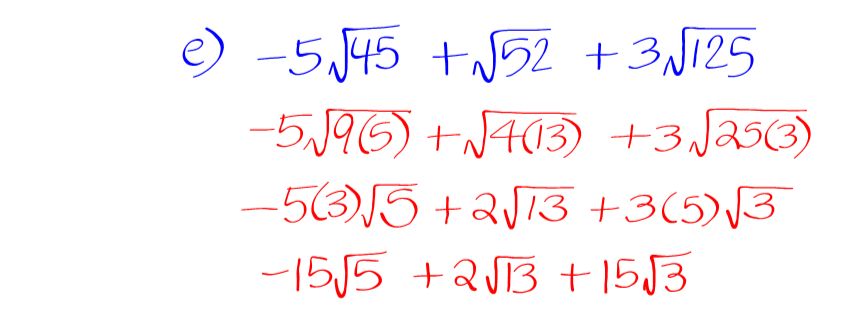 e) -5√45 + √52 + 3√125
-5√9(5) + √4(13) + 3√25(3)
-5(3)√5 + 2√13 + 3(5)√3
-15√5 + 2√13 + 15√3